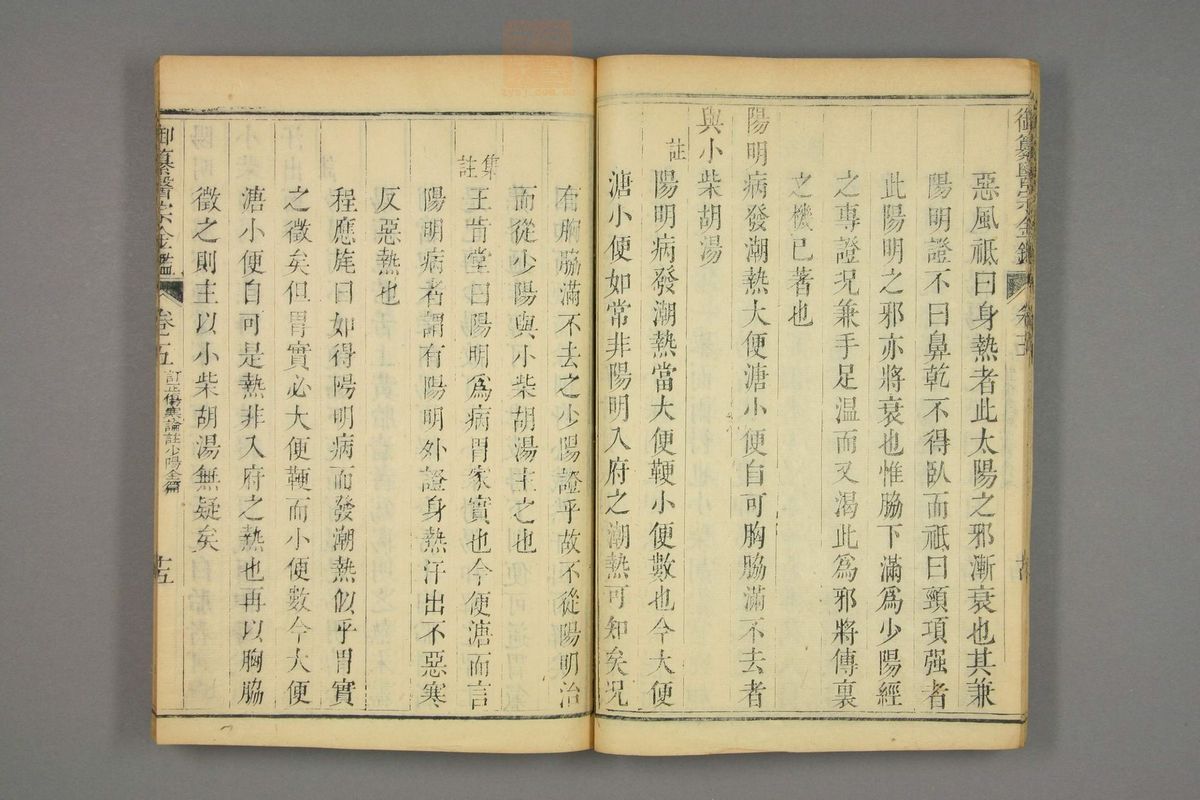 惡風祗曰身熱者此太陽之邪漸衰也其兼
陽明證不曰鼻乾不得臥而祗曰頸項强者
此陽明之邪亦將衰也惟脇下滿爲少陽經
之專證况兼手足溫而又渴此爲邪將傳裏
之機已著也
陽明病發潮熱大便溏小便自可胸脇滿不去者
與小柴胡湯
註
陽明病發潮熱當大便鞕小便數也今大便
溏小便如常非陽明入府之潮熱可知矣况
有胸脇滿不去之少陽證乎故不從陽明治
而從少陽與小柴胡湯主之也
集註
王肯堂曰陽明爲病胃家實也今便溏而言
陽明病者謂有陽明外證身熱汗出不惡寒
反惡熱也
程應旄曰如得陽明病而發潮熱似乎胃實
之徵矣但胃實必大便鞕而小便數今大便
溏小便自可是熱非入府之熱也再以胸脇
徵之則主以小柴胡湯無疑矣
御纂醫宗金鑑
卷五
訂正傷寒論註少陽全篇
十五